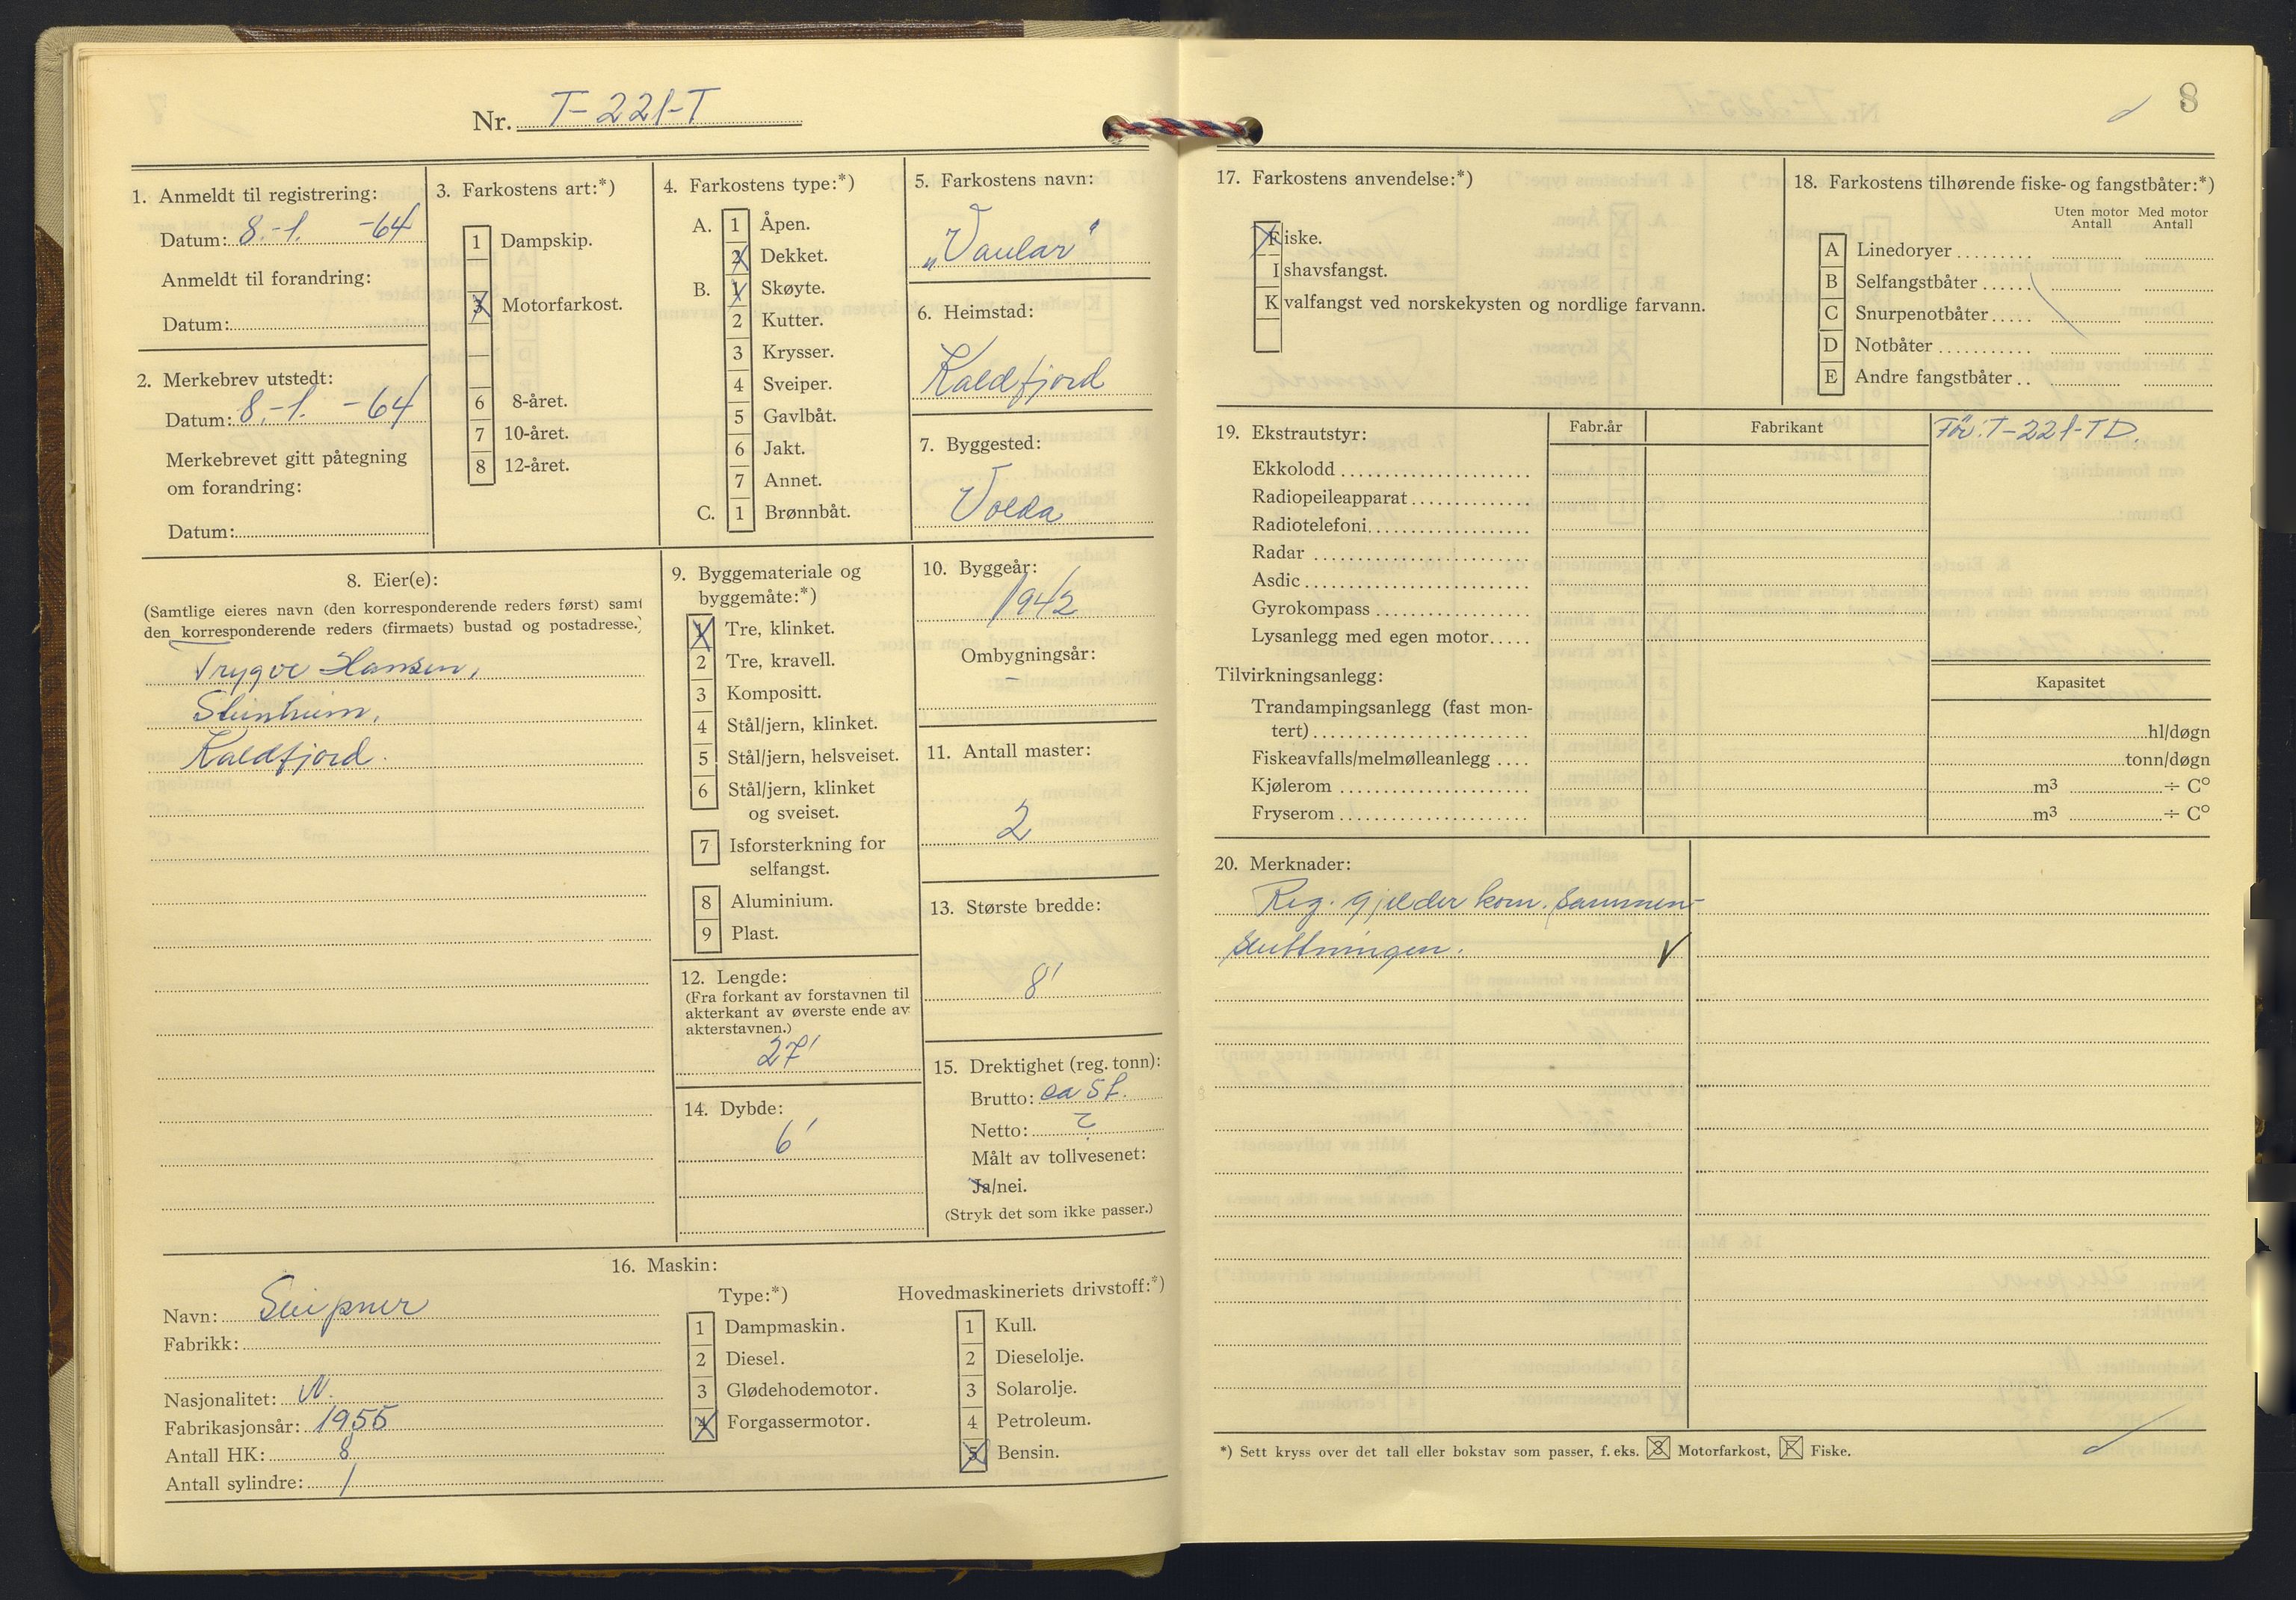 Nr. T-221-T
1. Anmeldt til registrering:
Datum: 8.-1. -64
Anmeldt til forandring:
Datum:
2. Merkebrev utstedt:
Datum: 8.-1. -64
Merkebrevet gitt påtegning
om forandring:
Datum:
3. Farkostens art:*)
1 Dampskip.
3 Motorfarkost.
6 8-året.
7 10-året.
8 12-året.
4. Farkostens type:*)
A. 1 Åpen.
2 Dekket.
B. 1 Skøyte.
2 Kutter.
3 Krysser.
4 Sveiper.
5 Gavlbåt.
6 Jakt.
7 Annet.
C. 1 Brønnbåt.
5. Farkostens navn:
„Vaular"
6. Heimstad:
Kaldfjord
7. Byggested:
Volda
8. Eier(e):
(Samtlige eieres navn (den korresponderende reders først) samt
den korresponderende reders (firmaets) bustad og postadresse.)
Trygve Hansen,
Steinheim,
Kaldfjord.
9. Byggemateriale og
byggemåte:*)
1 Tre, klinket.
2 Tre, kravell.
3 Kompositt.
4 Stål/jern, klinket.
5 Stål/jern, helsveiset.
6 Stål/jern, klinket
og sveiset.
7 Isforsterkning for
selfangst.
8 Aluminium.
9 Plast.
10. Byggeår:
1942
Ombygningsår:
–
11. Antall master:
2
12. Lengde:
(Fra forkant av forstavnen til
akterkant av øverste ende av
akterstavnen.)
27'
13. Største bredde:
8'
14. Dybde:
6'
15. Drektighet (reg. tonn):
Brutto: ca 5 t.
Netto: ?
Målt av tollvesenet:
Ja/nei.
(Stryk det som ikke passer.)
16. Maskin:
Navn: Sleipner
Fabrikk:
Nasjonalitet: N.
Fabrikasjonsår: 1955
Antall HK: 8
Antall sylindre: 1
Type:*)
1 Dampmaskin.
2 Diesel.
3 Glødehodemotor.
4 Forgassermotor.
Hovedmaskineriets drivstoff:*)
1 Kull.
2 Dieselolje.
3 Solarolje.
4 Petroleum.
5 Bensin.
8
17. Farkostens anvendelse:*)
Fiske.
Ishavsfangst.
Kvalfangst ved norskekysten og nordlige farvann.
18. Farkostens tilhørende fiske- og fangstbåter:*)
Uten motor Med motor
Antall Antall
A Linedoryer
B Selfangstbåter
C Snurpenotbåter
D Notbåter
E Andre fangstbåter
19. Ekstrautstyr:
Fabr.år Fabrikant
Før: T-221-TD.
Ekkolodd
Radiopeileapparat
Radiotelefoni
Radar
Asdic
Gyrokompass
Lysanlegg med egen motor
Tilvirkningsanlegg:
Kapasitet
Trandampingsanlegg (fast mon-
tert) hl/døgn
Fiskeavfalls/melmølleanlegg tonn/døgn
Kjølerom m³ ÷ C°
Fryserom m³ ÷ C°
20. Merknader:
Reg. gjelder kom. sammen-
sluttningen. V
*) Sett kryss over det tall eller bokstav som passer, f. eks. 3 Motorfarkost, F Fiske.